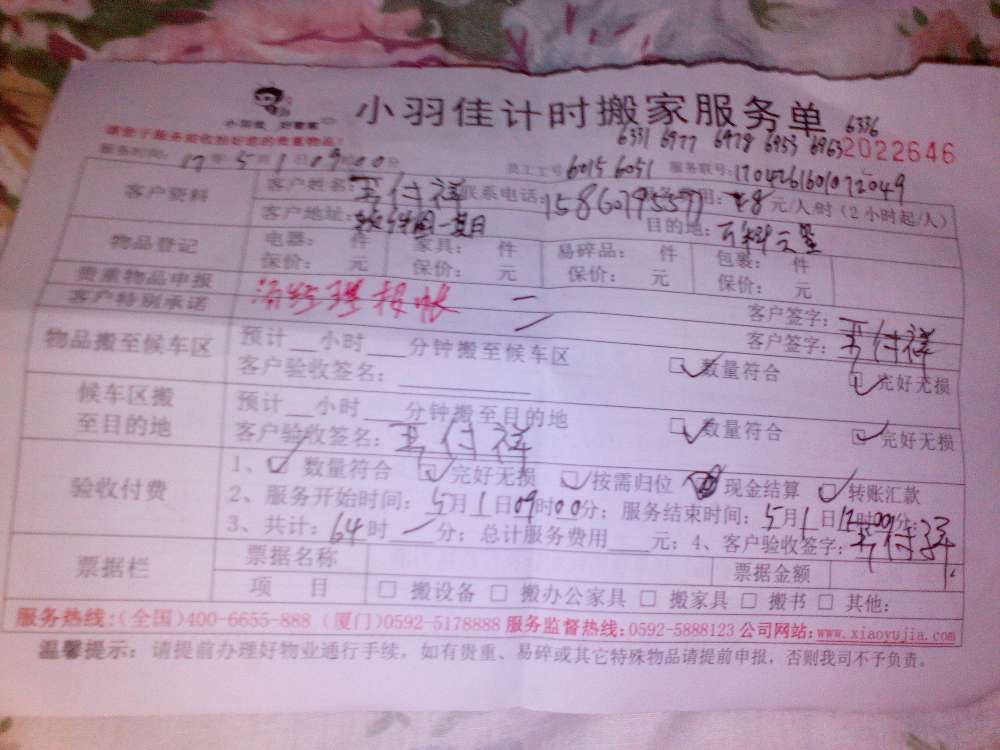 小羽佳计时搬家服务单
小羽佳 好管家
请您于服务前收拾好您的贵重物品!
6336
6331 6977 6978 6953 6963 2022646
服务时间: 17年5月1日09时00分 员工工号 6015 6051 服务联号: 170426160107 2049
客户资料 客户姓名: 付祥 联系电话: 15860795597 元/人/时(2小时起/人)
客户地址: 目的地: 万科
物品登记 电器: 件 家具: 件 易碎品: 件 包裹: 件
保价: 元 保价: 元 保价: 元 保价: 元
贵重物品申报 客户签字:
客户特别承诺 客户签字: 付祥
物品搬至候车区 预计__小时___分钟搬至候车区
客户验收签名: 数量符合 完好无损
候车区搬至目的地 预计__小时___分钟搬至目的地 数量符合 完好无损
客户验收签名: 付祥
验收付费 1、 数量符合 完好无损 按需归位 现金结算 转账汇款
2、服务开始时间: 5月1日09时00分; 服务结束时间: 5月1日17时00分;
3、共计: 64时 一分; 总计服务费用___元; 4、客户验收签字:
票据栏 票据名称 票据金额
项 目 □ 搬设备 □ 搬办公家具 □ 搬家具 □ 搬书 □ 其他:
服务热线:(全国)400-6655-888 (厦门)0592-5178888 服务监督热线:0592-5888123 公司网站:www.xiaoyujia.com
温馨提示: 请提前办理好物业通行手续, 如有贵重、易碎或其它特殊物品请提前申报, 否则我司不予负责。